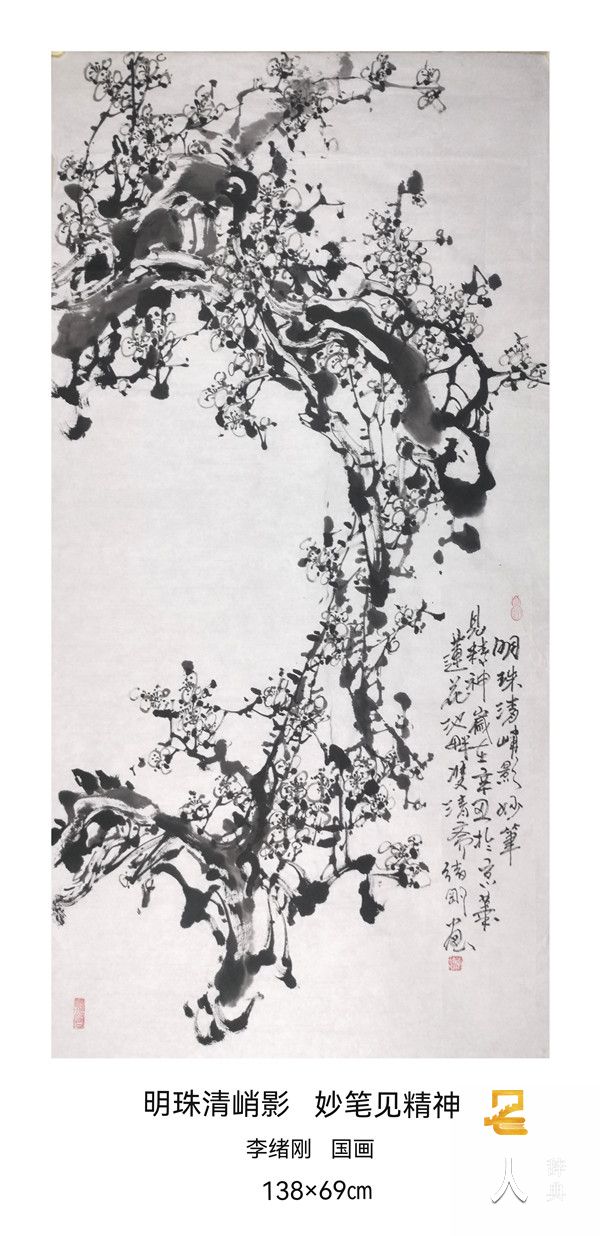 明珠清峭影妙筆
見精神歲在辛丑於京華
蓮花池畔雙清齋緒剛畫
明珠清峭影 妙笔见精神
李绪刚 国画
138×69㎝
名
人
辞
典